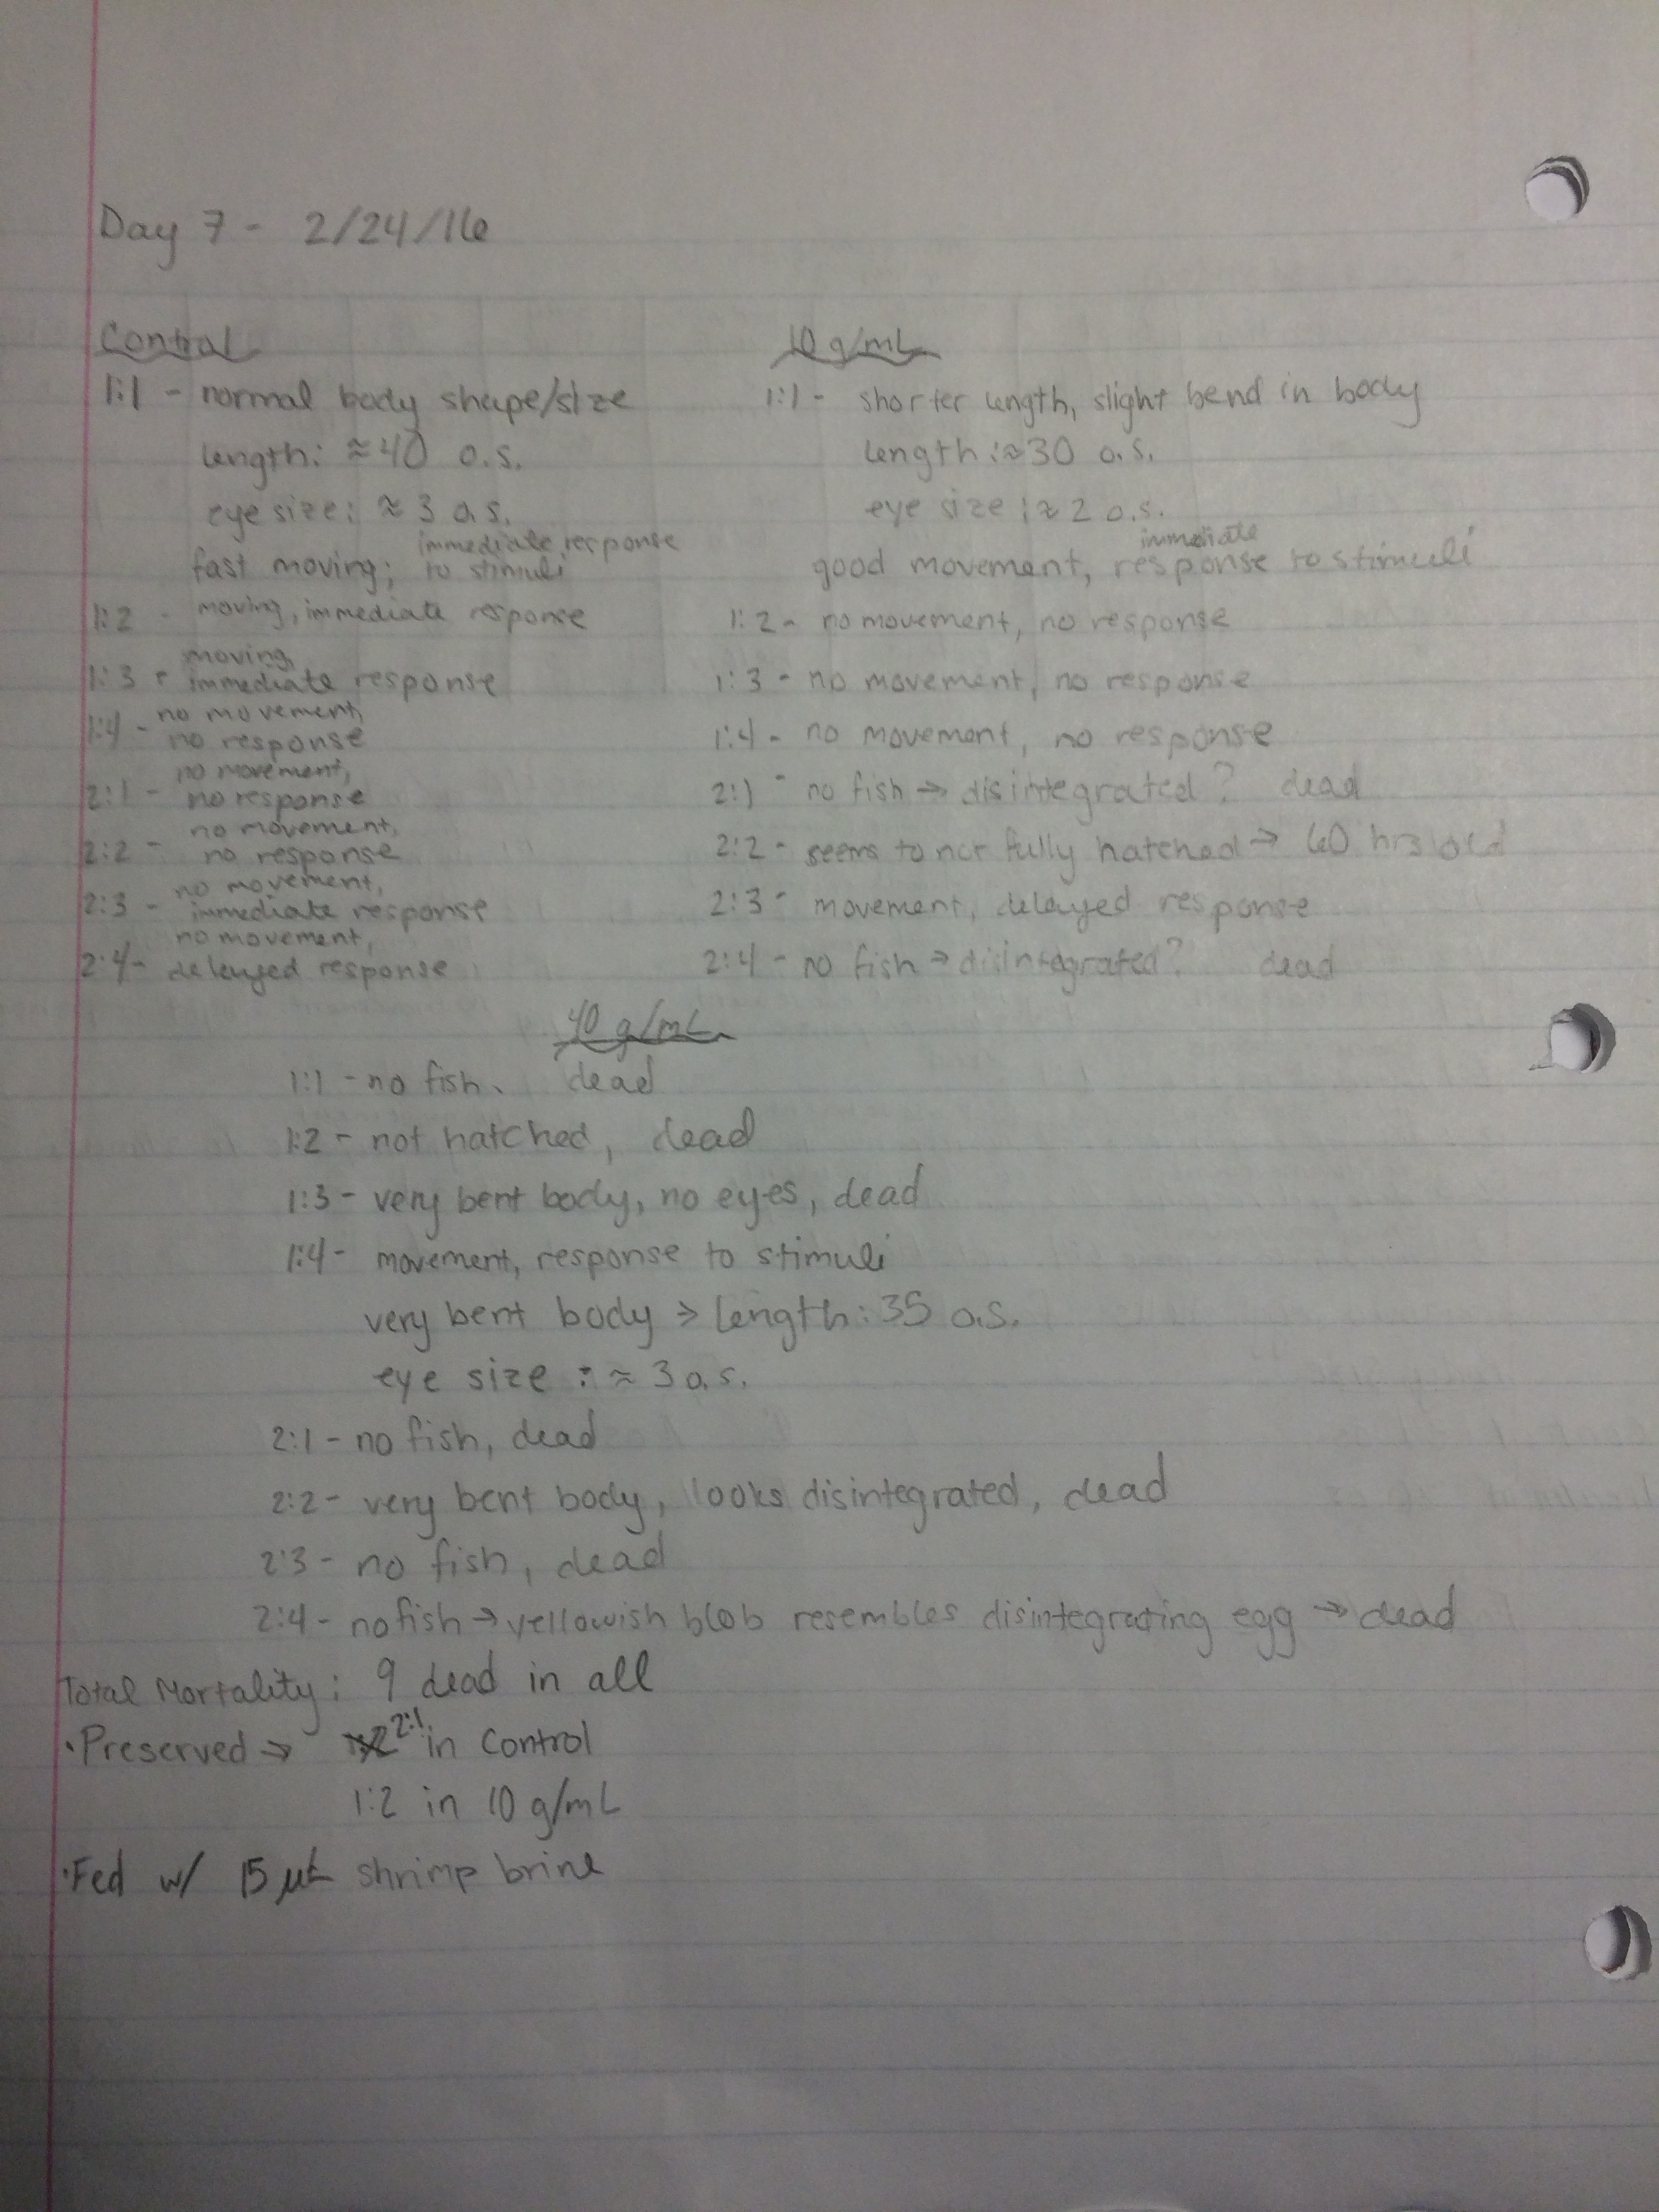 Day 7 - 2/24/16
Control
1:1 - normal body shape/size
length: ≈40 o.s.
eye size: ≈ 3 o.s.
fast moving; immediate response to stimuli
1:2 - moving, immediate response
1:3 - moving, immediate response
1:4 - no movement, no response
2:1 - no movement, no response
2:2 - no movement, no response
2:3 - no movement, immediate response
2:4 - no movement, delayed response
10 g/mL
1:1 - shorter length, slight bend in body
length: ≈30 o.s.
eye size: ≈ 2 o.s.
good movement, immediate response to stimuli
1:2 - no movement, no response
1:3 - no movement, no response
1:4 - no movement, no response
2:1 - no fish → disintegrated? dead
2:2 - seems to not fully hatched → 60 hrs old
2:3 - movement, delayed response
2:4 - no fish → disintegrated? dead
40 g/mL
1:1 - no fish, dead
1:2 - not hatched, dead
1:3 - very bent body, no eyes, dead
1:4 - movement, response to stimuli
very bent body → length: 35 o.s.
eye size: ≈ 3 o.s.
2:1 - no fish, dead
2:2 - very bent body, looks disintegrated, dead
2:3 - no fish, dead
2:4 - no fish → yellowish blob resembles disintegrating egg → dead
Total Mortality: 9 dead in all
• Preserved → 2:1 in control
1:2 in 10 g/mL
• Fed w/ 15 µL shrimp brine